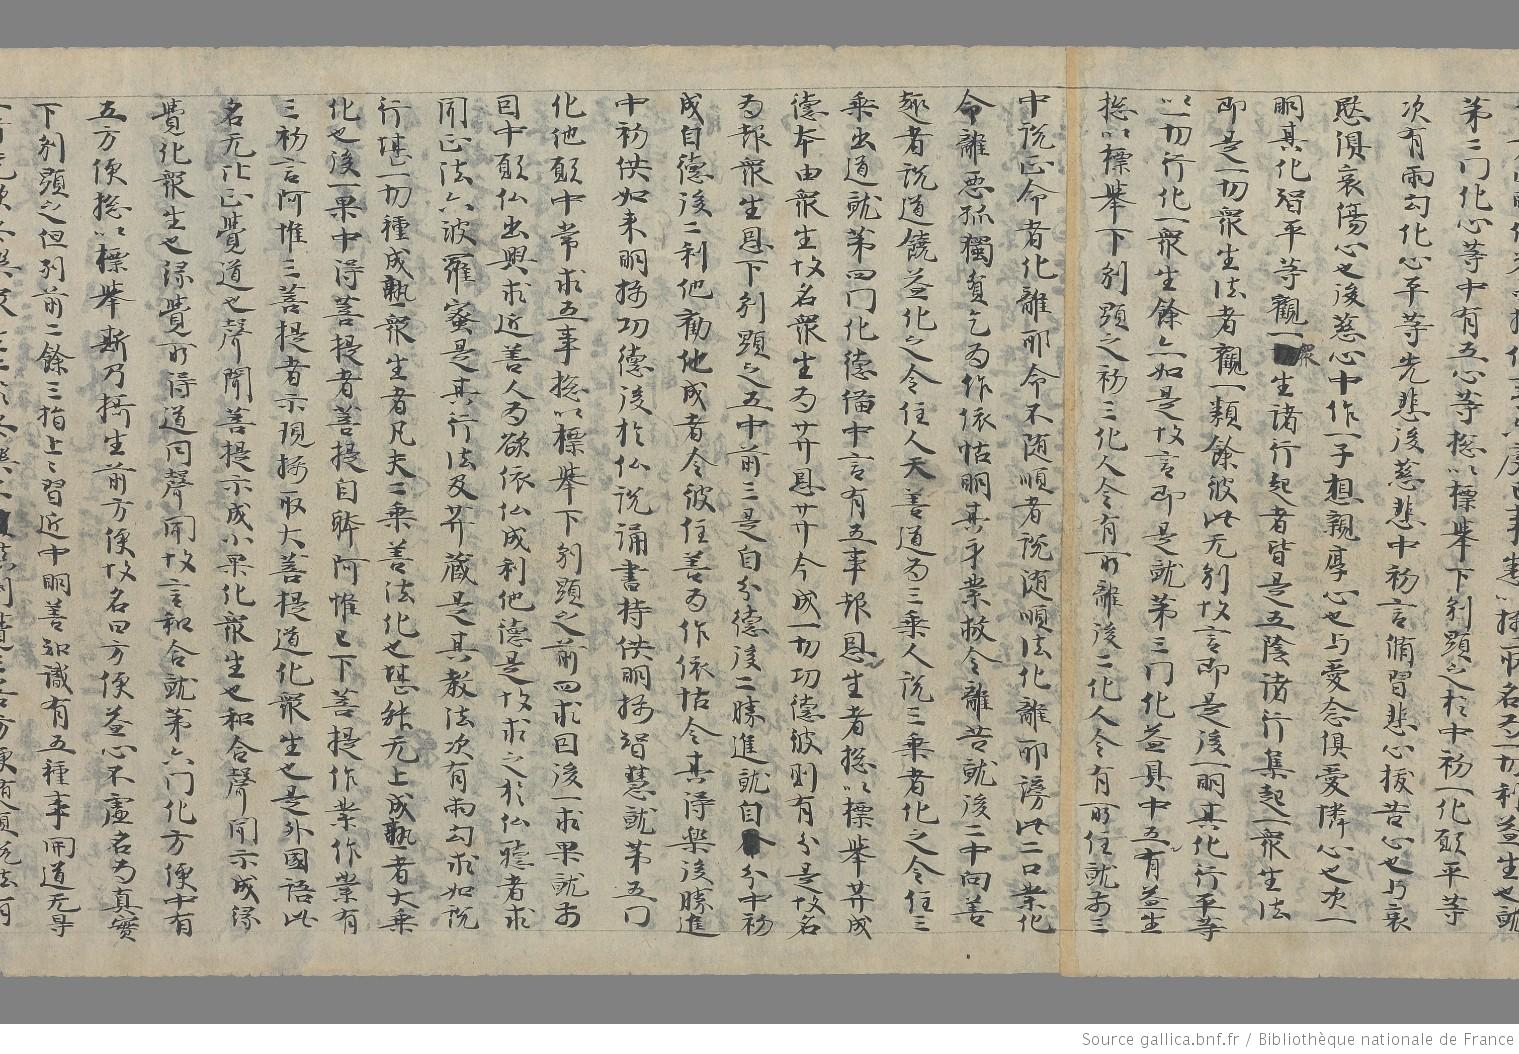 第二門化心等中有五心等捴以標舉下別顯之於中初一化願平等
次有兩句化心平等先悲後慈悲中初言脩習悲心拔苦心也与哀
愍俱哀傷心也後慈心中作一子想親厚心也与愛念俱愛憐心也次一
明其化智平等觀一衆生諸行起者皆是五陰諸行集起一衆生法
即是一切衆生法者觀一類餘彼此无別故言即是後一明其化行平等
以一切行化一衆生餘亦如是故言即是就第三門化益具中五有益生
捴以標舉下別顯之初三化人令有所離後二化人令有所住就前三
中說正命者化離邪命不随順者說随順法化離邪謗此二口業化
令離惡孤獨貧乞为作依怙明其手業救令離苦就後二中向善
趣者說道饒益化之令住人天善道为三乘人說三乘者化之令住三
乘出道就第四門化德備中言有五事報恩生者捴以標舉菩薩成
德本由衆生故名衆生为菩薩恩菩薩今成一切功德彼則有分是故名
为報衆生恩下別顯之五中前三是自分德後二勝進就自分中初
成自德後二利他勸他成者令彼住善为作依怙令其得樂後勝進
中初供如来明揚功德後於仏說誦書持供明揚智慧就第五門
化他願中常求五事捴以標舉下別顯之前四求因後一求果就前
因中願仏出興求近善人为欲依仏成利他德是故求之於仏聽者求
聞正法六波羅蜜是其行法及菩薩藏是其教法次有兩句求如說
行堪一切種成熟一衆生者凡夫二乘善法化也堪能无上成熟者大乘
化也後一果中得菩提者菩提自解阿惟已下菩提作業作業有
三初言阿惟三菩提者示現揚取大菩提道化衆生也是外國語此
名无上正覺道也聲聞菩提示成小果化衆生也和合聲聞示成緣
覺化衆生也緣覺所得道同聲聞故言和合就第六門化方便中有
五方便捴以標舉斯乃攝生前方便故名曰方便益心不虛名为真實
下別顯之但列前二餘三指上上習近中明善知識有五種事開道无导